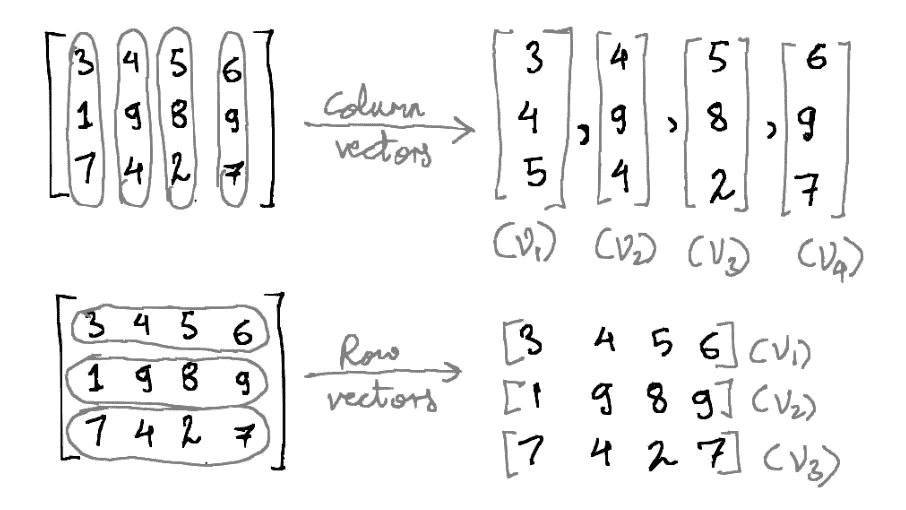 [3 4 5 6
1 9 8 9
7 4 2 7]
Column
vectors
[3 4 5], [4 9 4], [5 8 2], [6 9 7]
(V₁) (V₂) (V₃) (V₄)
[3 4 5 6
1 9 8 9
7 4 2 7]
Row
vectors
[3 4 5 6] (V₁)
[1 9 8 9] (V₂)
[7 4 2 7] (V₃)